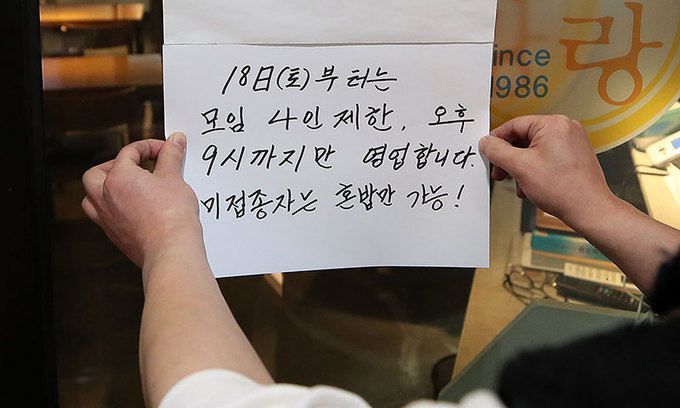 18日(토)부터는
모임 4인 제한, 오후
9시까지만 영업합니다.
미접종자는 혼밥만 가능!
랑
since
1986